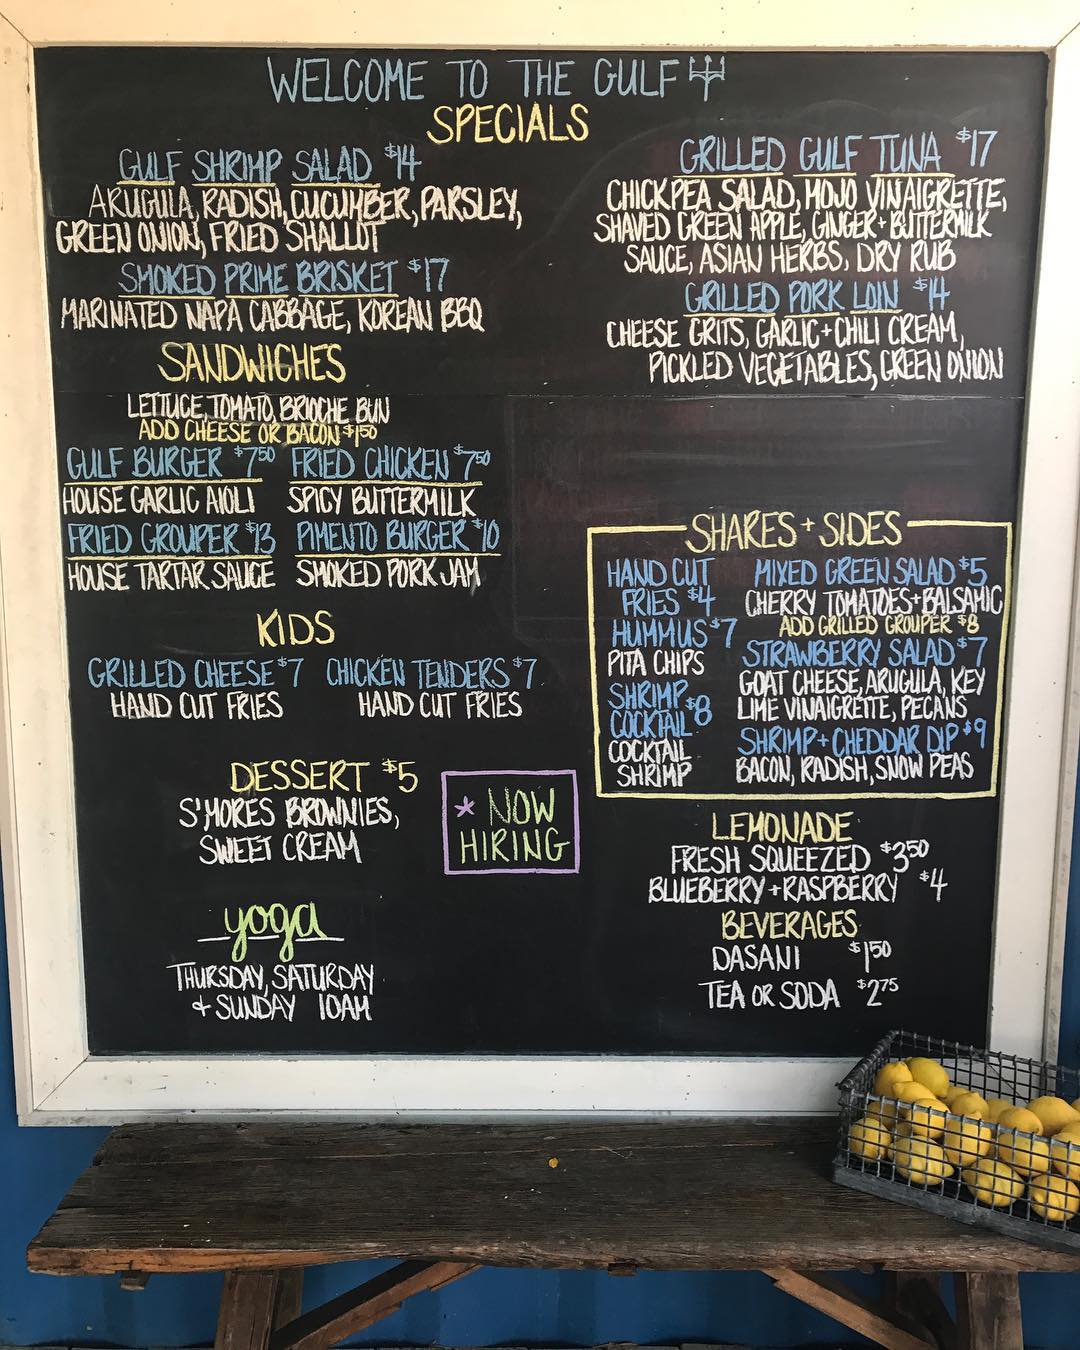 WELCOME TO THE GULF
SPECIALS
GULF SHRIMP SALAD $14
ARUGULA, RADISH, CUCUMBER, PARSLEY,
GREEN ONION, FRIED SHALLOT
SMOKED PRIME BRISKET $17
MARINATED NAPA CABBAGE, KOREAN BBQ
GRILLED GULF TUNA $17
CHICKPEA SALAD, MOJO VINAIGRETTE,
SHAVED GREEN APPLE, GINGER + BUTTERMILK
SAUCE, ASIAN HERBS, DRY RUB
GRILLED PORK LOIN $14
CHEESE GRITS, GARLIC + CHILI CREAM,
PICKLED VEGETABLES, GREEN ONION
SANDWICHES
LETTUCE, TOMATO, BRIOCHE BUN
ADD CHEESE OR BACON $1.50
GULF BURGER $7.50 FRIED CHICKEN $7.50
HOUSE GARLIC AIOLI SPICY BUTTERMILK
FRIED GROUPER $13 PIMENTO BURGER $10
HOUSE TARTAR SAUCE SMOKED PORK JAM
KIDS
GRILLED CHEESE $7 CHICKEN TENDERS $7
HAND CUT FRIES HAND CUT FRIES
DESSERT $5
S'MORES BROWNIES,
SWEET CREAM
* NOW
HIRING
yoga
THURSDAY, SATURDAY
+ SUNDAY 10AM
SHARES + SIDES
HAND CUT
FRIES $4
HUMMUS $7
PITA CHIPS
SHRIMP
COCKTAIL $8
COCKTAIL
SHRIMP
MIXED GREEN SALAD $5
CHERRY TOMATOES + BALSAMIC
ADD GRILLED GROUPER $8
STRAWBERRY SALAD $7
GOAT CHEESE, ARUGULA, KEY
LIME VINAIGRETTE, PECANS
SHRIMP + CHEDDAR DIP $9
BACON, RADISH, SNOW PEAS
LEMONADE
FRESH SQUEEZED $3.50
BLUEBERRY + RASPBERRY $4
BEVERAGES
DASANI $1.50
TEA OR SODA $2.75